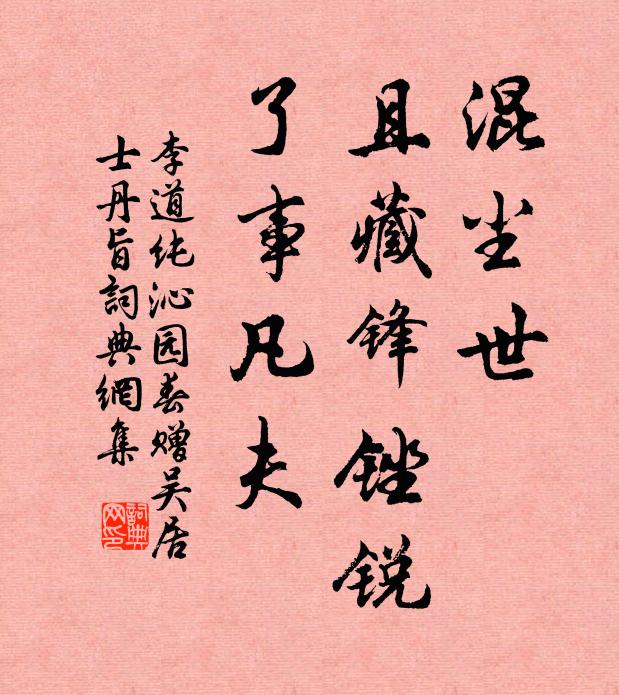 混尘世
且藏锋锉锐
了事凡夫
李道纯沁园春赠吴居
士丹旨詞典網集
詞典
网印